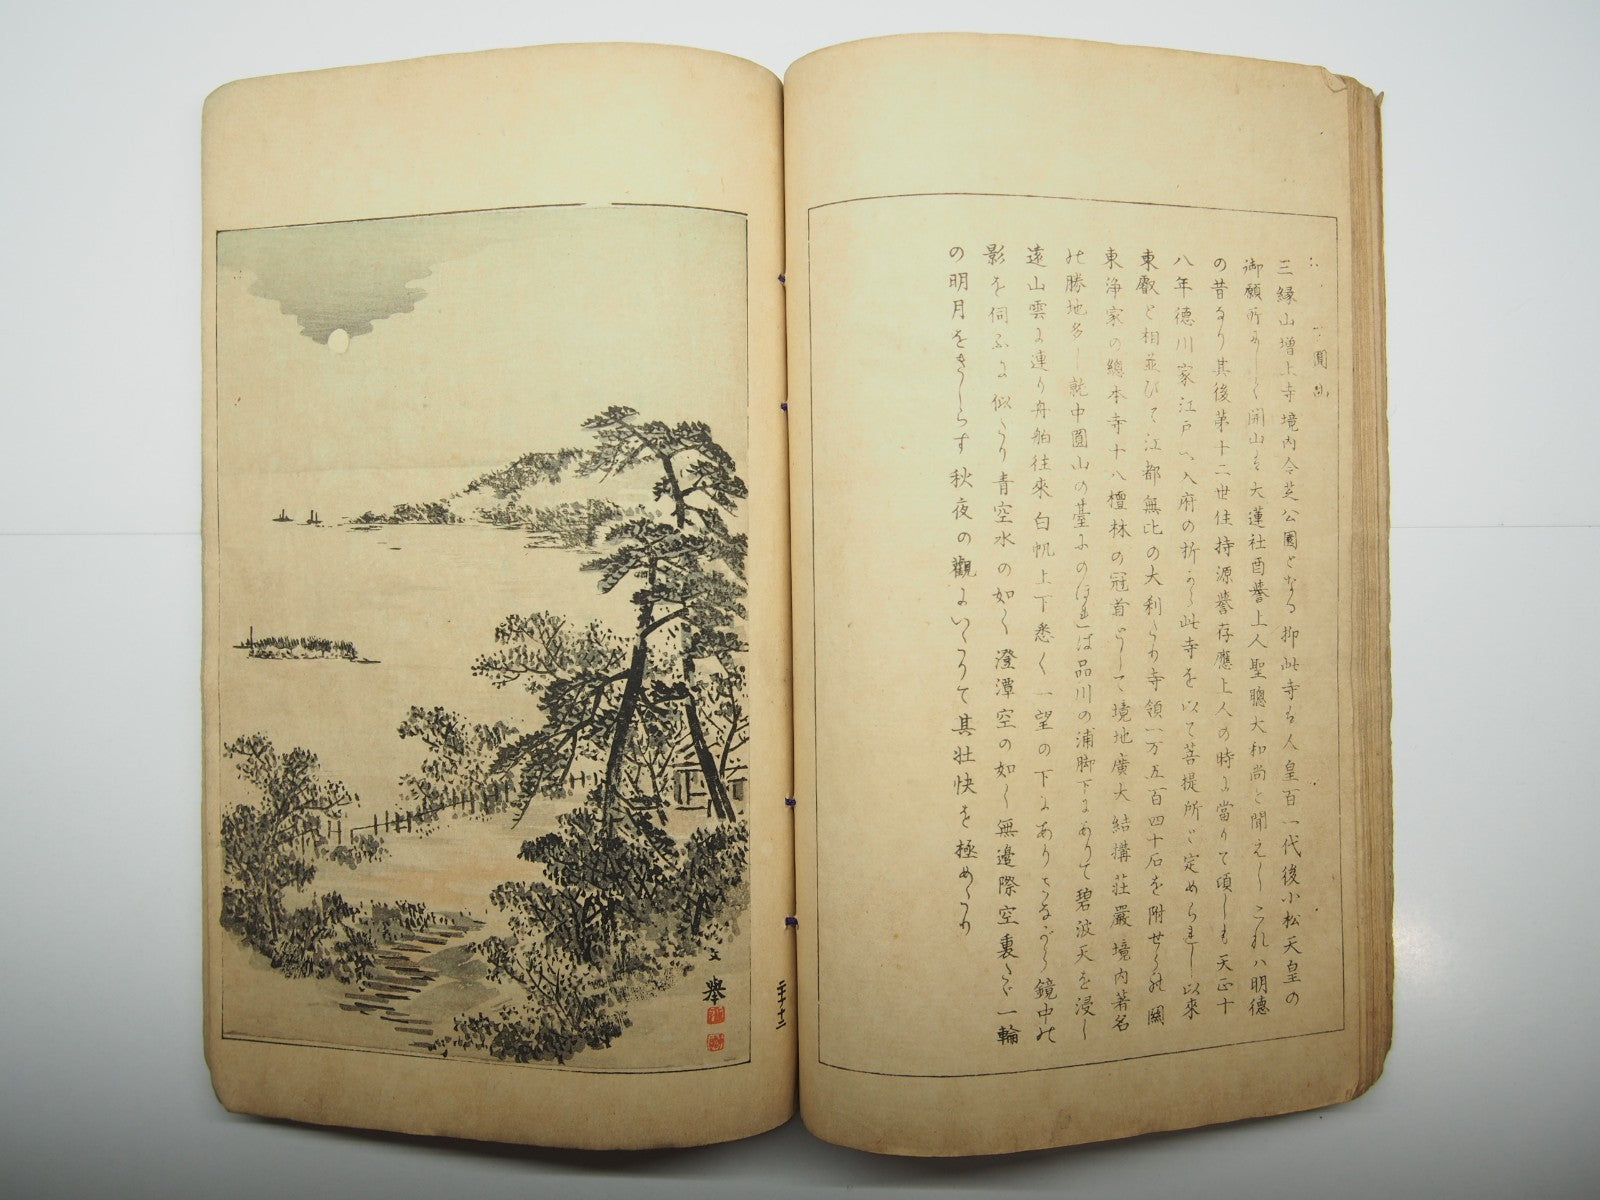 圓山
三縁山増上寺境内今芝公園となる抑此寺ハ人皇百一代後小松天皇の
御願所にして開山を大蓮社酉誉上人聖聰大和尚と聞えしこれハ明徳
の昔なり其後第十二世住持源誉存應上人の時に當りて頃しも天正十
八年徳川家江戸へ入府の折から此寺を以て菩提所と定められし以來
東叡と相並びて江都無比の大利たり寺領一万五百四十石を附せられ關
東浄家の總本寺十八檀林の冠首として境地廣大結構荘嚴境内著名
の勝地多し就中圓山の臺にのぼれば品川の浦脚下にありて碧波天を浸し
遠山雲に連り舟舶往來白帆上下悉く一望の下にありさながら鏡中の
影を伺ふに似たり青空水の如く澄潭空の如く無邊際空裏たゞ一輪
の明月をきしらす秋夜の觀にいたりて其壮快を極めたり
文擧
二十二